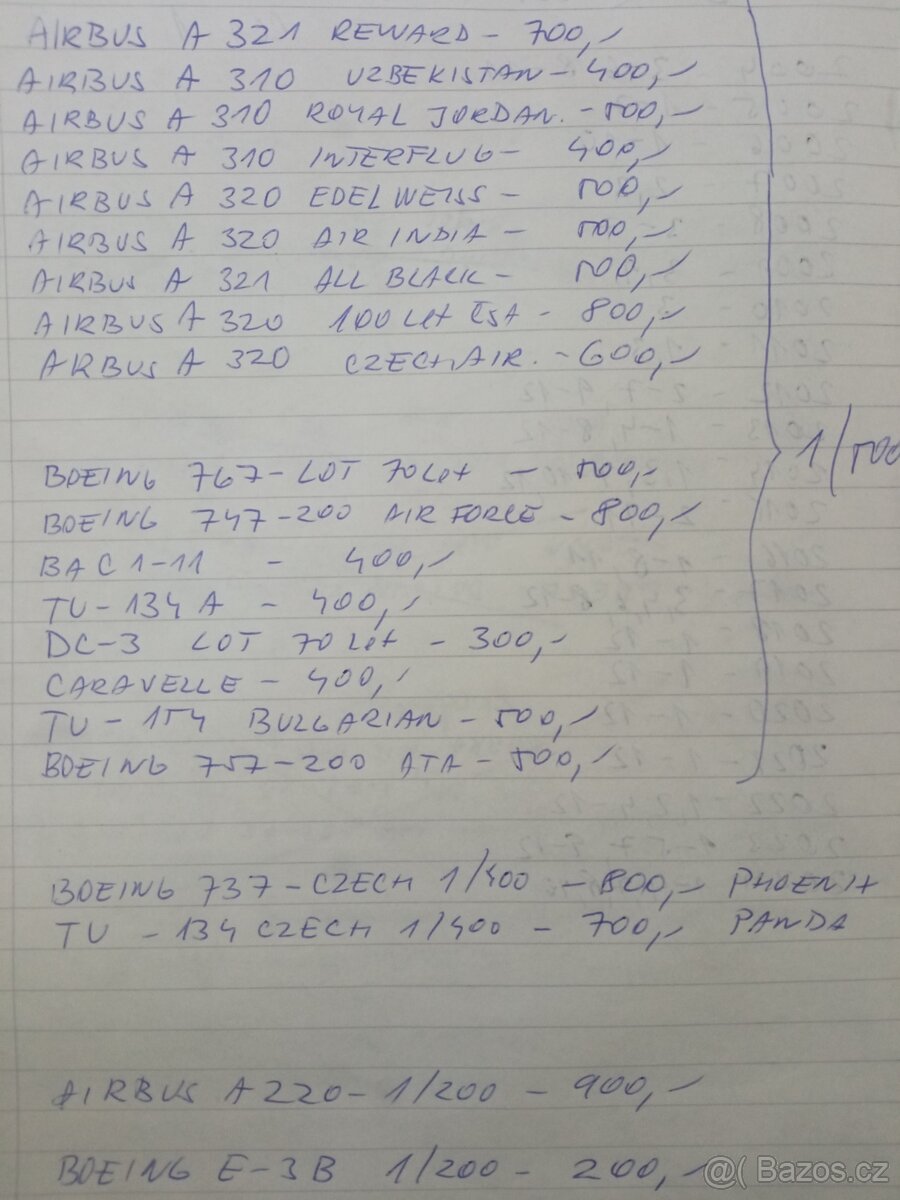 AIRBUS A 321 REWARD - 700,-
AIRBUS A 310 UZBEKISTAN - 400,-
AIRBUS A 310 ROYAL JORDAN. - 500,-
AIRBUS A 310 INTERFLUG - 400,-
AIRBUS A 320 EDELWEISS - 500,-
AIRBUS A 320 AIR INDIA - 500,-
AIRBUS A 321 ALL BLACK - 500,-
AIRBUS A 320 100 let ČSA - 800,-
ARBUS A 320 CZECH AIR. - 600,-
1/500
BOEING 767 - LOT 70 let - 500,-
BOEING 747-200 AIR FORCE - 800,-
BAC 1-11 - 400,-
TU-134 A - 400,-
DC-3 LOT 70 let - 300,-
CARAVELLE - 400,-
TU-154 BULGARIAN - 500,-
BOEING 757-200 ATA - 500,-
BOEING 737-CZECH 1/400 - 800,- PHOENIX
TU - 134 CZECH 1/400 - 700,- PANDA
AIRBUS A220 - 1/200 - 900,-
BOEING E-3B 1/200 - 200,-
@( Bazos.cz